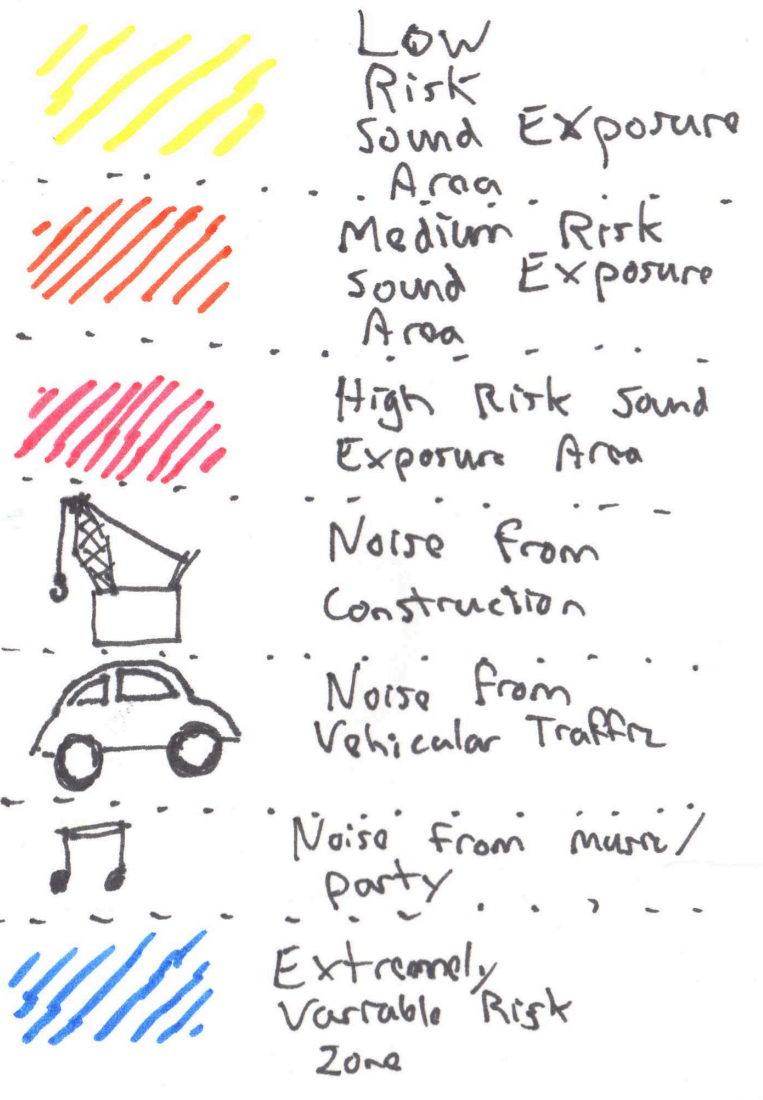 Low
Risk
Sound Exposure
Area
Medium Risk
Sound Exposure
Area
High Risk Sound
Exposure Area
Noise from
Construction
Noise from
Vehicular Traffic
Noise from music/
party
Extremely
Variable Risk
Zone